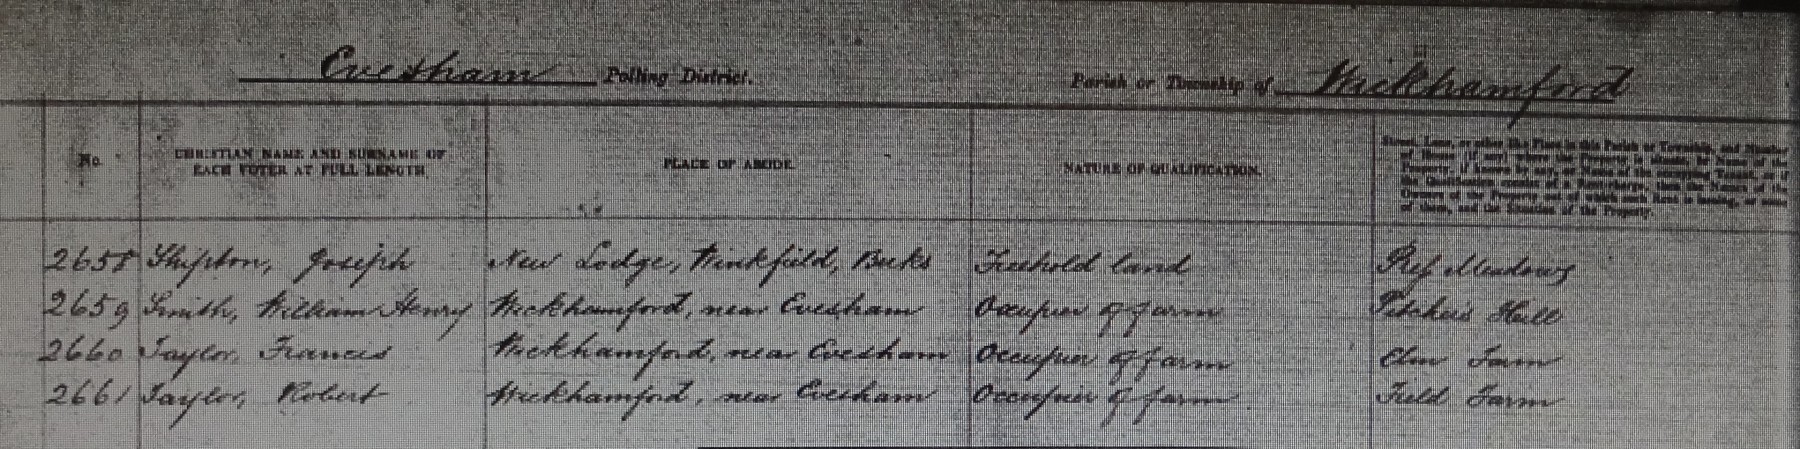 Evesham Polling District.
Parish or Township of Wickhamford
No.
CHRISTIAN NAME AND SURNAME OF
EACH VOTER AT FULL LENGTH.
PLACE OF ABODE.
NATURE OF QUALIFICATION.
Street, Lane, or other like Place in this Parish or Township, and Number
of House (if any) where the Property is situate, or Name of the
Property, if known by any, or Name of the occupying Tenant, or if
the Qualification consists of a Rent-charge, then the Names of the
Owners of the Property out of which such Rent is issuing, or some
of them, and the Situation of the Property.
2658 Shipton, Joseph New Lodge, Winkfield, Bucks Freehold land Meadows
2659 Smith, William Henry Wickhamford, near Evesham Occupier of farm Pitchers Hall
2660 Taylor, Francis Wickhamford, near Evesham Occupier of farm Elm Farm
2661 Taylor, Robert Wickhamford, near Evesham Occupier of farm Field Farm